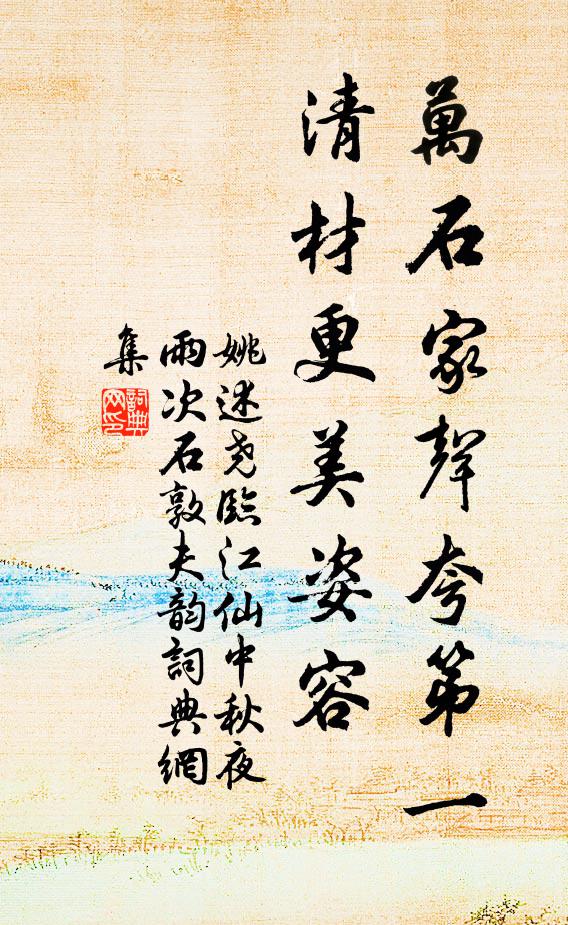 萬石家聲夸第一
清材更美姿容
姚述堯臨江仙中秋夜
雨次石敦夫韵詞典網
集
詞典
网印